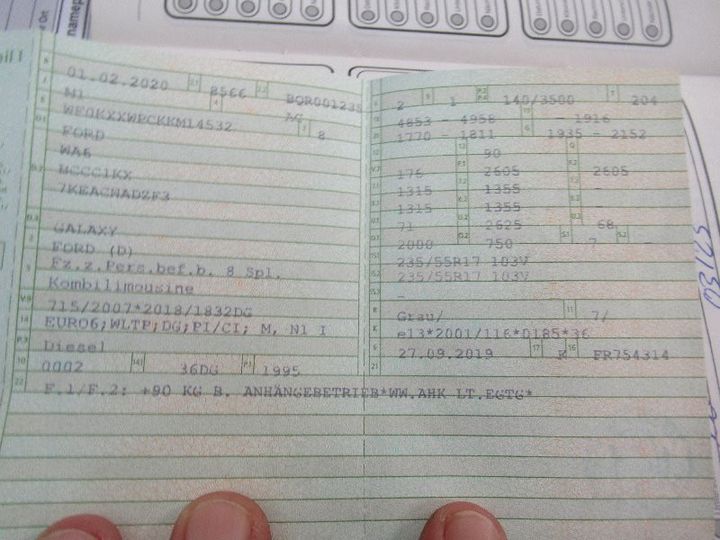 01.02.2020 8566 BOR001235
M1 AG
WF0KXXWPCKKM14532 8
FORD
WA6
MCCC1KX
7KEACMAD2F3
GALAXY
FORD (D)
Fz.z.Pers.bef.b. 8 Spl.
Kombilimousine
715/2007*2018/1832DG
EURO6;WLTP;DG;PI/CI; M, N1 I
Diesel
0002 36DG 1995
2 1 140/3500 204
4853 - 4958 - 1916
1770 - 1811 1935 - 2152
90
176 2605 2605
1315 1355 -
1315 1355 -
71 2625 68
2000 750 7 -
235/55R17 103V
235/55R17 103V
-
Grau/ 7/
e13*2001/116*0185*36
27.09.2019 K FR754314
F.1/F.2: +90 KG B. ANHÄNGEBETRIEB*WW.AHK LT.EGTG*
03/25